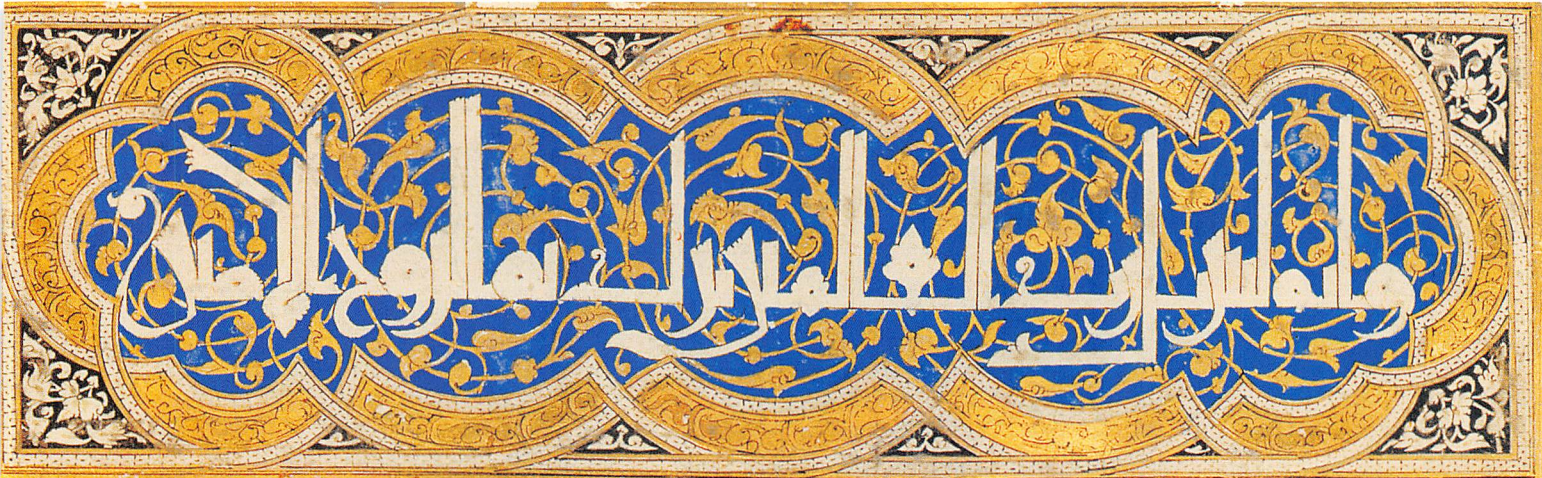 وانه لتنزيل رب العالمين نزل به الروح الامين